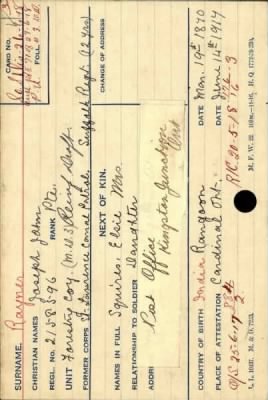 SURNAME, Rayner
CHRISTIAN NAMES Joseph John
REGL. NO. 2158396 RANK Pte.
UNIT Forestry Coy. (M.D.3) Reinf. Draft
FORMER CORPS St. Lawrence Canal Patrol. Suffolk Regt. (12 yrs)
NEXT OF KIN.
NAMES IN FULL Squires, Elsie Mrs.
RELATIONSHIP TO SOLDIER Daughter
ADDRESS Post Office
Kingston Junction
Ont.
COUNTRY OF BIRTH India Rangoon DATE Mar. 19th 1870
PLACE OF ATTESTATION Cardinal Ont. DATE June 14th 1917
O/S 25-6-17
R/C 20-5-18
CARD NO.
FOLL.
M. F. W. 22